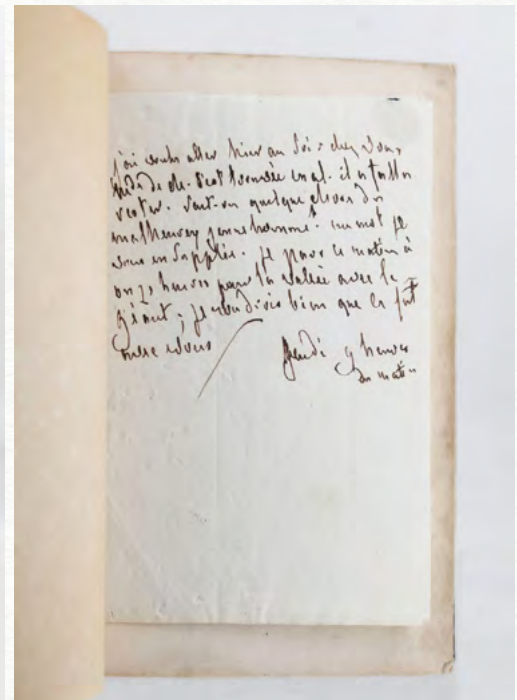 j'ai voulu aller hier au soir chez vous,
Mde de Ch. s'est trouvée mal. il a fallu
rester. Sait-on quelque chose du
malheureux jeune homme? un mot je
vous en supplie. Je pars ce matin à
onze heures pour la vallée avec le
géant; je voudrois bien que ce fut
avec vous
Jeudi 9 heures
du matin